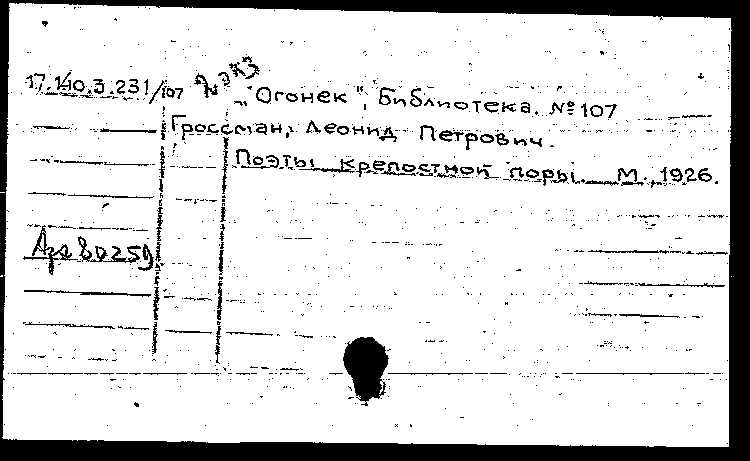 17.140.3.231/107
„Огонек", Библиотека. № 107
Гроссман, Леонид Петрович.
Поэты крепостной поры. М., 1926.